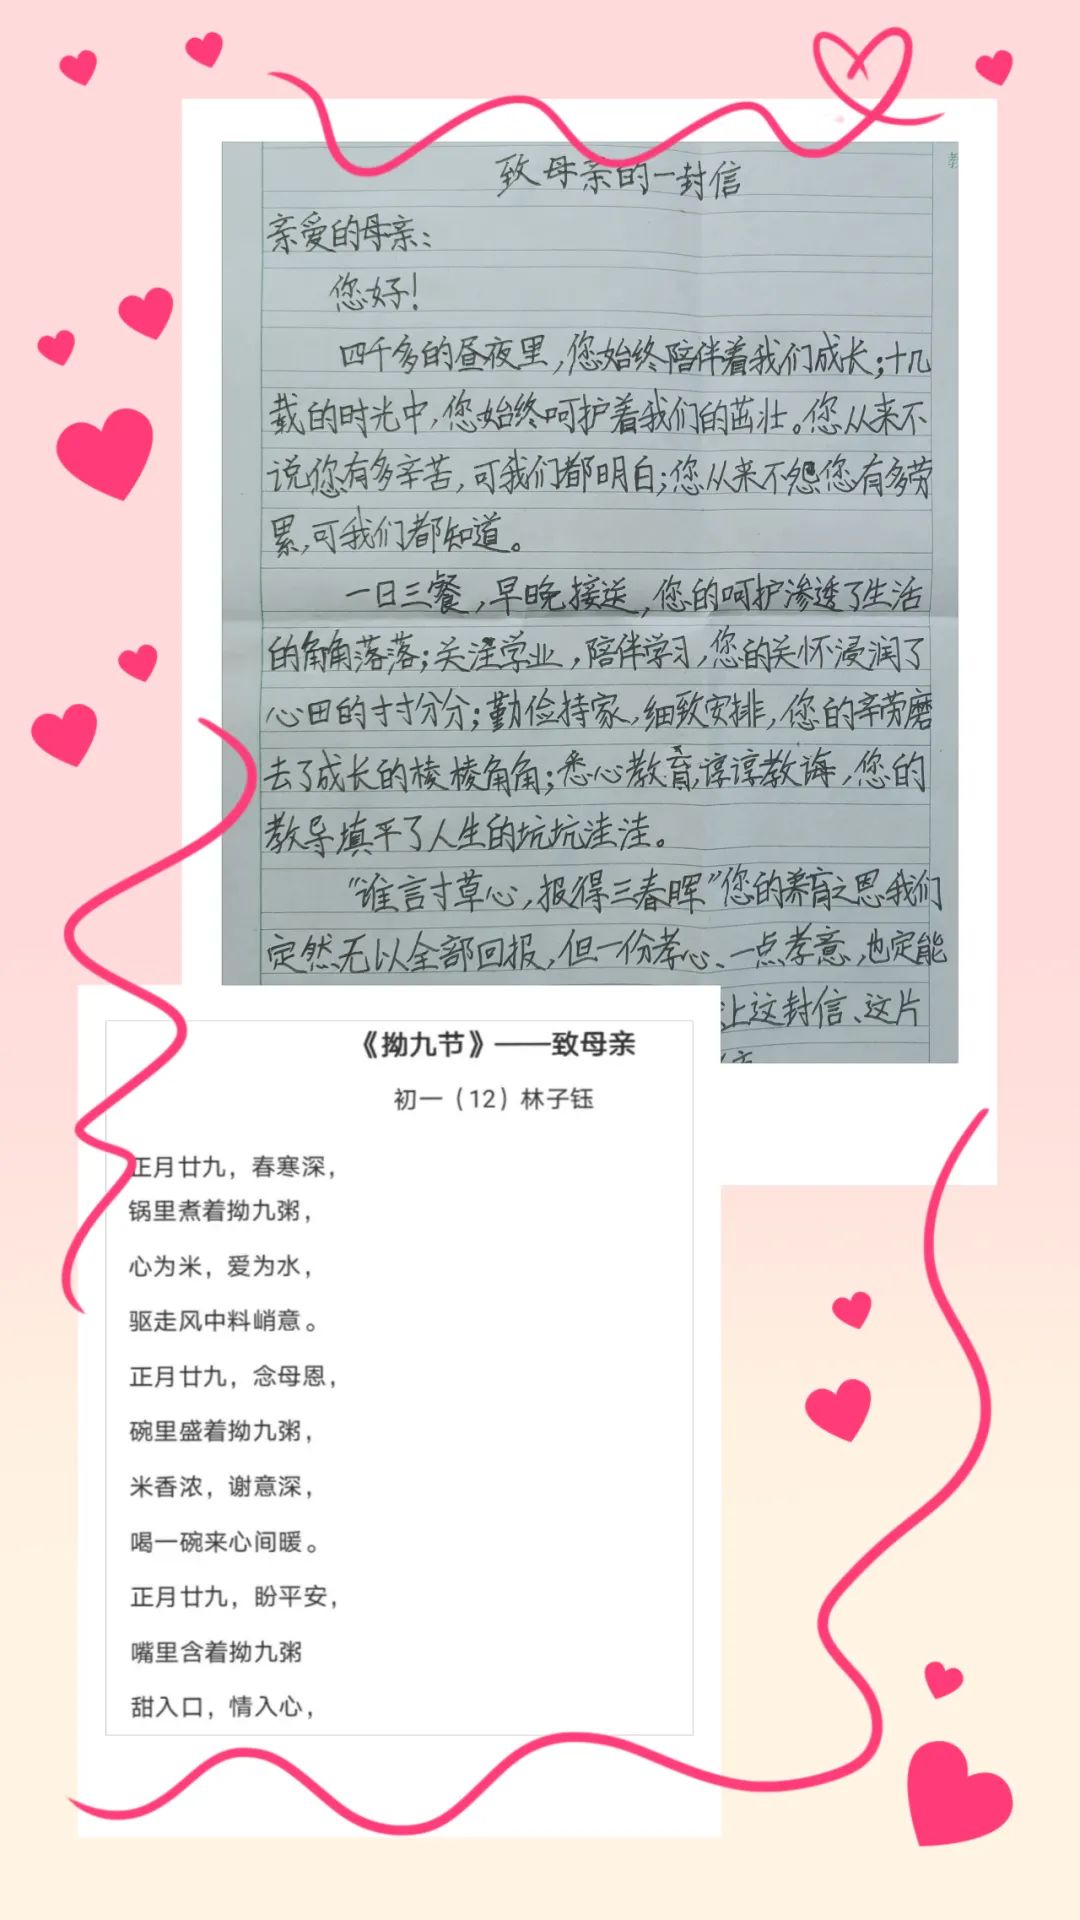 致母亲的一封信
亲爱的母亲：
您好！
四千多的昼夜里，您始终陪伴着我们成长；十几
载的时光中，您始终呵护着我们的茁壮。您从来不
说您有多辛苦，可我们都明白；您从来不怨您有多劳
累，可我们都知道。
一日三餐，早晚接送，您的呵护渗透了生活
的角角落落；关注学业，陪伴学习，您的关怀浸润了
心田的寸寸分分；勤俭持家，细致安排，您的辛劳磨
去了成长的棱棱角角；悉心教育，谆谆教诲，您的
教导填平了人生的坑坑洼洼。
“谁言寸草心，报得三春晖”您的养育之恩我们
定然无以全部回报，但一份孝心、一点孝意，也定能
上这封信、这片
《拗九节》——致母亲
初一（12）林子钰
正月廿九，春寒深，
锅里煮着拗九粥，
心为米，爱为水，
驱走风中料峭意。
正月廿九，念母恩，
碗里盛着拗九粥，
米香浓，谢意深，
喝一碗来心间暖。
正月廿九，盼平安，
嘴里含着拗九粥
甜入口，情入心，